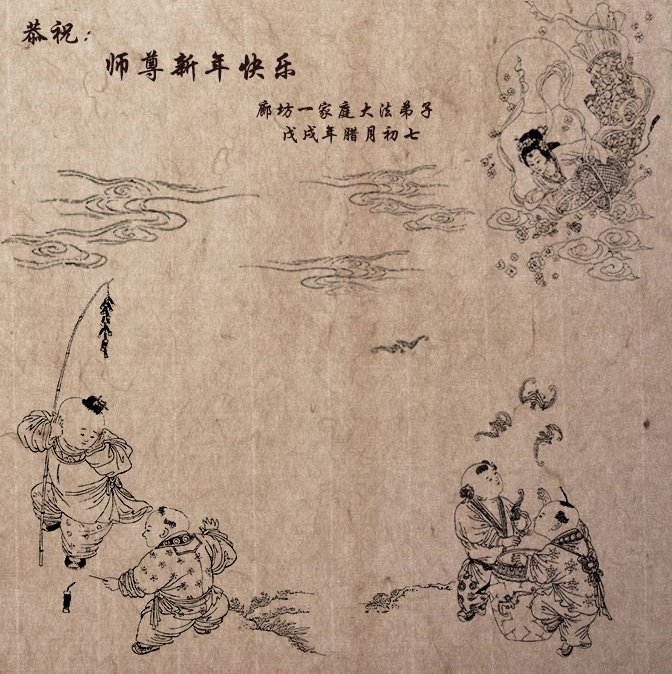 恭祝：
师尊新年快乐
廊坊一家庭大法弟子
戊戌年腊月初七